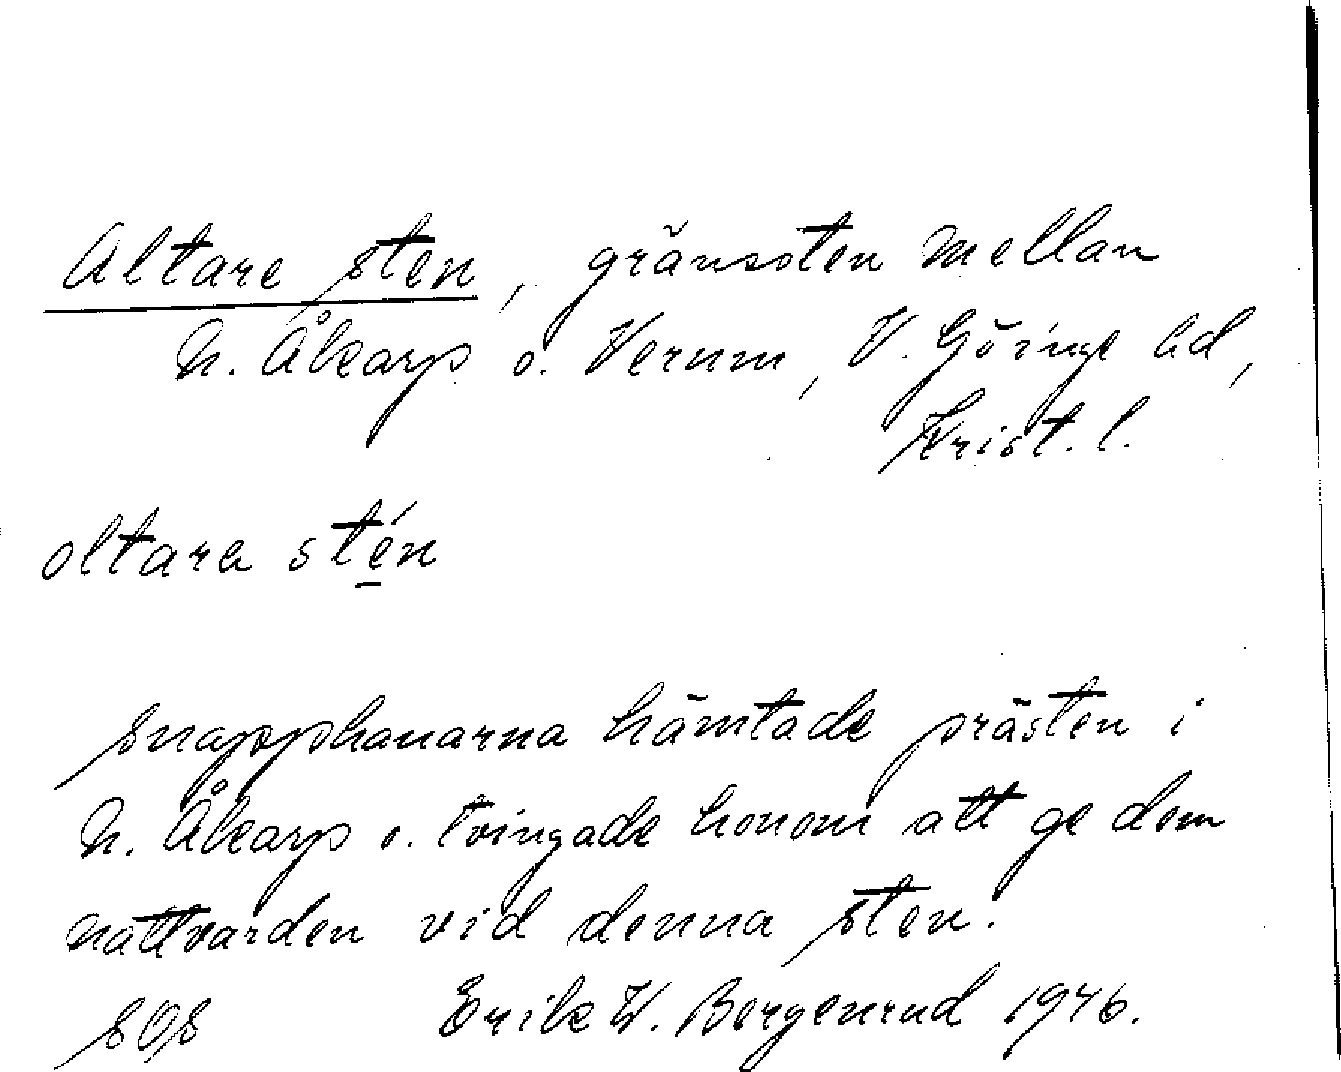 Altare sten, gränsten mellan
N. Åkarp o. Verum, V. Göinge hd,
Krist. l.
oltara stén
Snapphanarna hämtade prästen i
N. Åkarp o. tvingade honom att ge dem
nattvarden vid denna sten.
SOS Erik W. Bergenrud 1946.